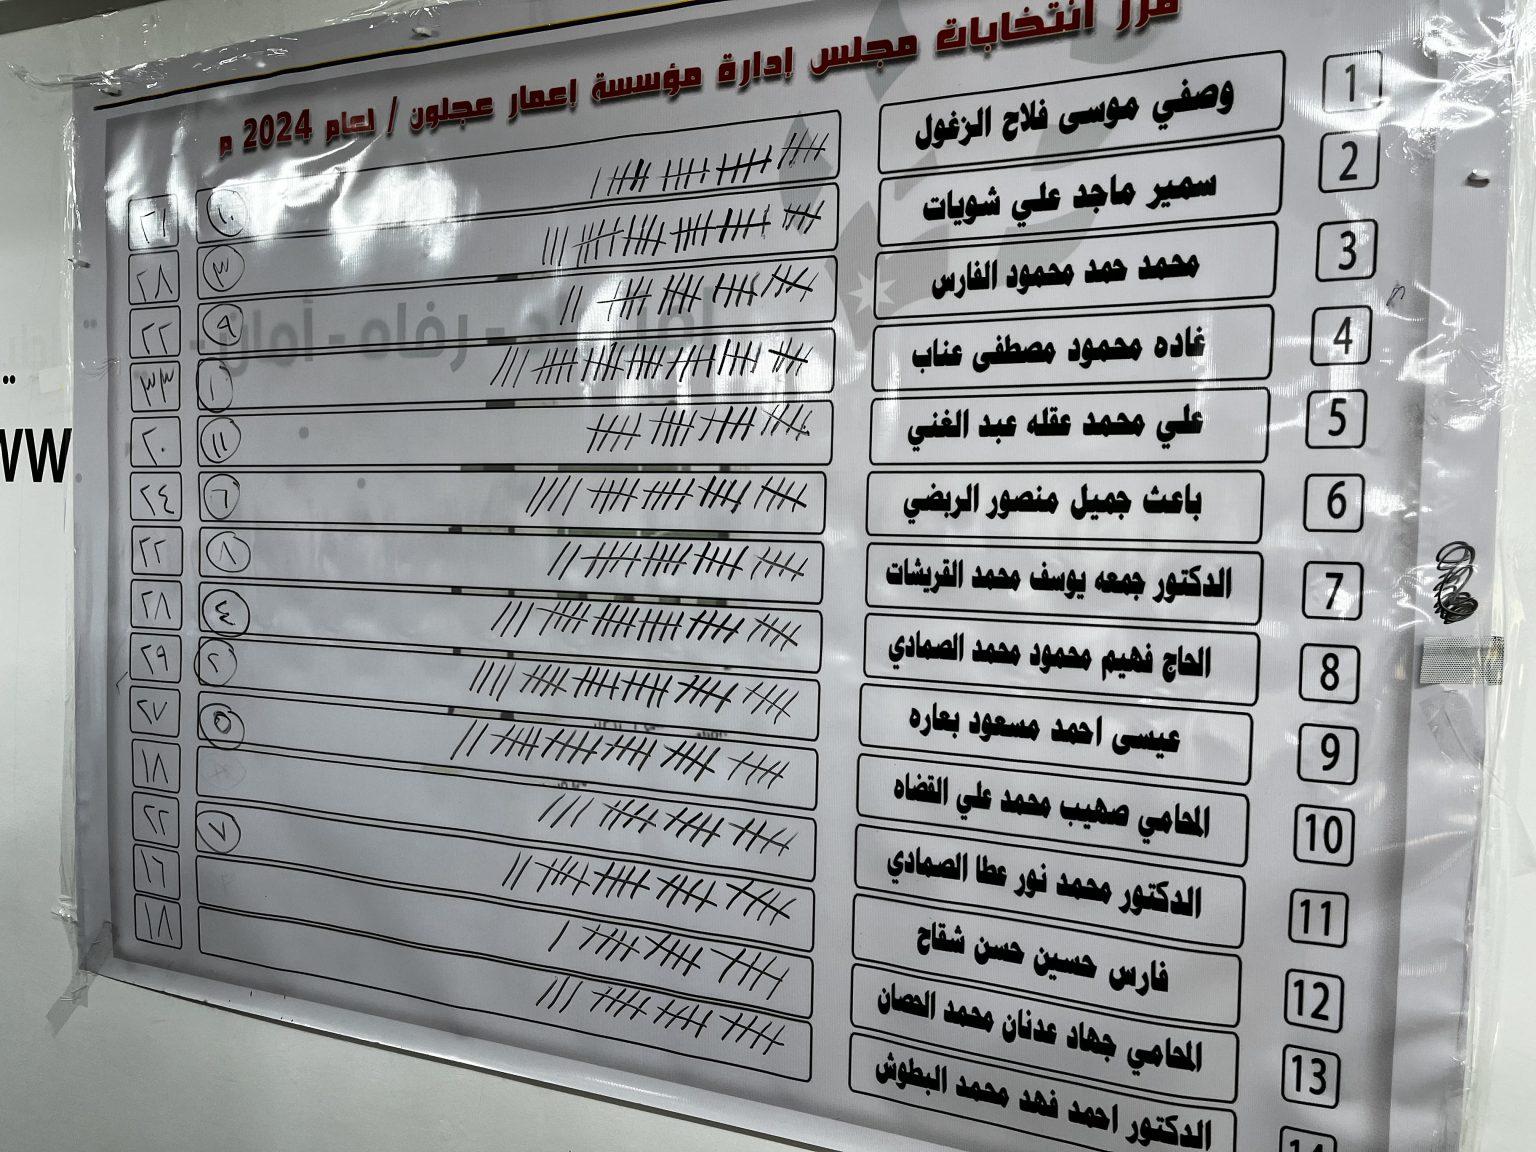 فرز انتخابات مجلس إدارة مؤسسة إعمار عجلون / لعام 2024 م
1 وصفي موسى فلاح الزغول ١٠ ٢١
2 سمير ماجد علي شويات ٣ ٢٨
3 محمد حمد محمود الفارس ٩ ٢٢
4 غاده محمود مصطفى عناب ١ ٣٣
5 علي محمد عقله عبد الغني ١١ ٢٠
6 باعث جميل منصور الربضي ٦ ٢٤
7 الدكتور جمعه يوسف محمد القريشات ٨ ٢٢
8 الحاج فهيم محمود محمد الصمادي ٤ ٢٨
9 عيسى احمد مسعود بعاره ٢ ٢٩
10 المحامي صهيب محمد علي القضاه ٥ ٢٧
11 الدكتور محمد نور عطا الصمادي ١٨
12 فارس حسين حسن شقاح ٧ ٢٢
13 المحامي جهاد عدنان محمد الحصان ١٦
14 الدكتور احمد فهد محمد البطوش ١٨
رفاه - أمان
ww